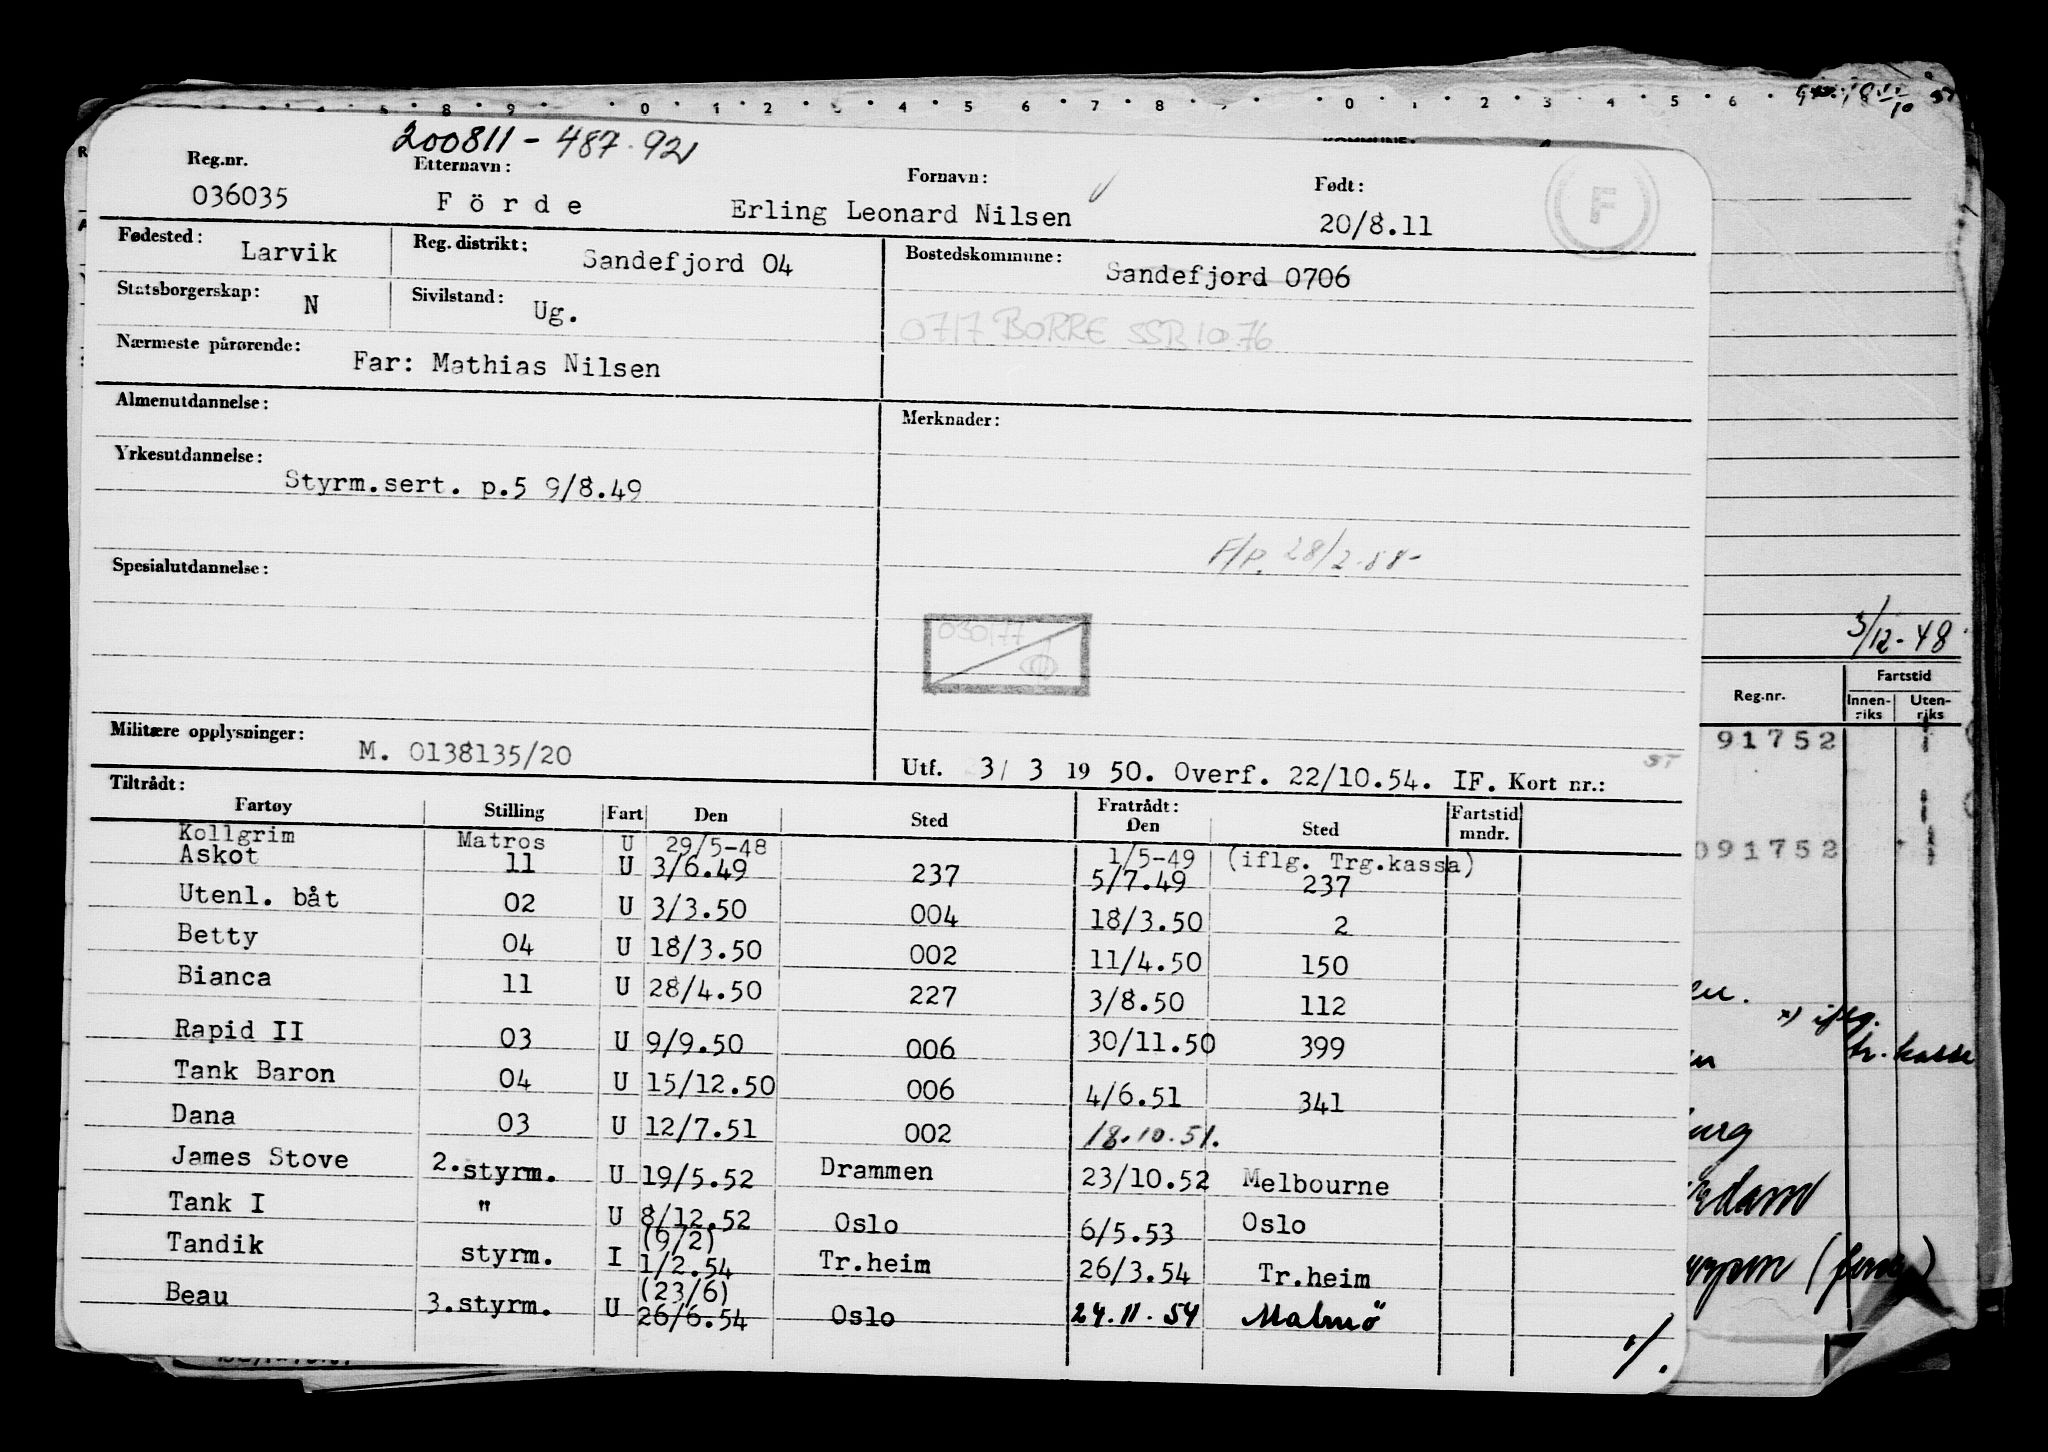 200811 - 487.92
Reg.nr. Etternavn: Fornavn: Født:
036035 Förde Erling Leonard Nilsen 20/8.11
F
Fødested: Larvik Reg. distrikt: Sandefjord 04 Bostedskommune: Sandefjord 0706
Statsborgerskap: N Sivilstand: Ug.
0717 BORRE SSR 10.76
Nærmeste pårørende: Far: Mathias Nilsen
Almenutdannelse: Merknader:
Yrkesutdannelse: Styrm.sert. p.5 9/8.49
F/P. 28/2.58-
Spesialutdannelse:
030177
Militære opplysninger: M. 0138135/20
Utf. 3/ 3 19 50. Overf. 22/10.54. IF. Kort nr.:
Tiltrådt: Fratrådt:
Fartøy Stilling Fart Den Sted Den Sted Fartstid mndr.
Kollgrim Matros U 29/5-48 1/5-49 (iflg. Trg.kassa)
Askot 11 U 3/6.49 237 5/7.49 237
Utenl. båt 02 U 3/3.50 004 18/3.50 2
Betty 04 U 18/3.50 002 11/4.50 150
Bianca 11 U 28/4.50 227 3/8.50 112
Rapid II 03 U 9/9.50 006 30/11.50 399
Tank Baron 04 U 15/12.50 006 4/6.51 341
Dana 03 U 12/7.51 002 18.10.51.
James Stove 2.styrm. U 19/5.52 Drammen 23/10.52 Melbourne
Tank I " U 8/12.52 Oslo 6/5.53 Oslo
Tandik styrm. I (9/2) 1/2.54 Tr.heim 26/3.54 Tr.heim
Beau 3.styrm. U (23/6) 26/6.54 Oslo 24.11.54 Malmø
./.
3/12-48
Reg.nr. Fartstid
Innen-riks Uten-riks
91752
091752
x) iflg.
tr. kasse